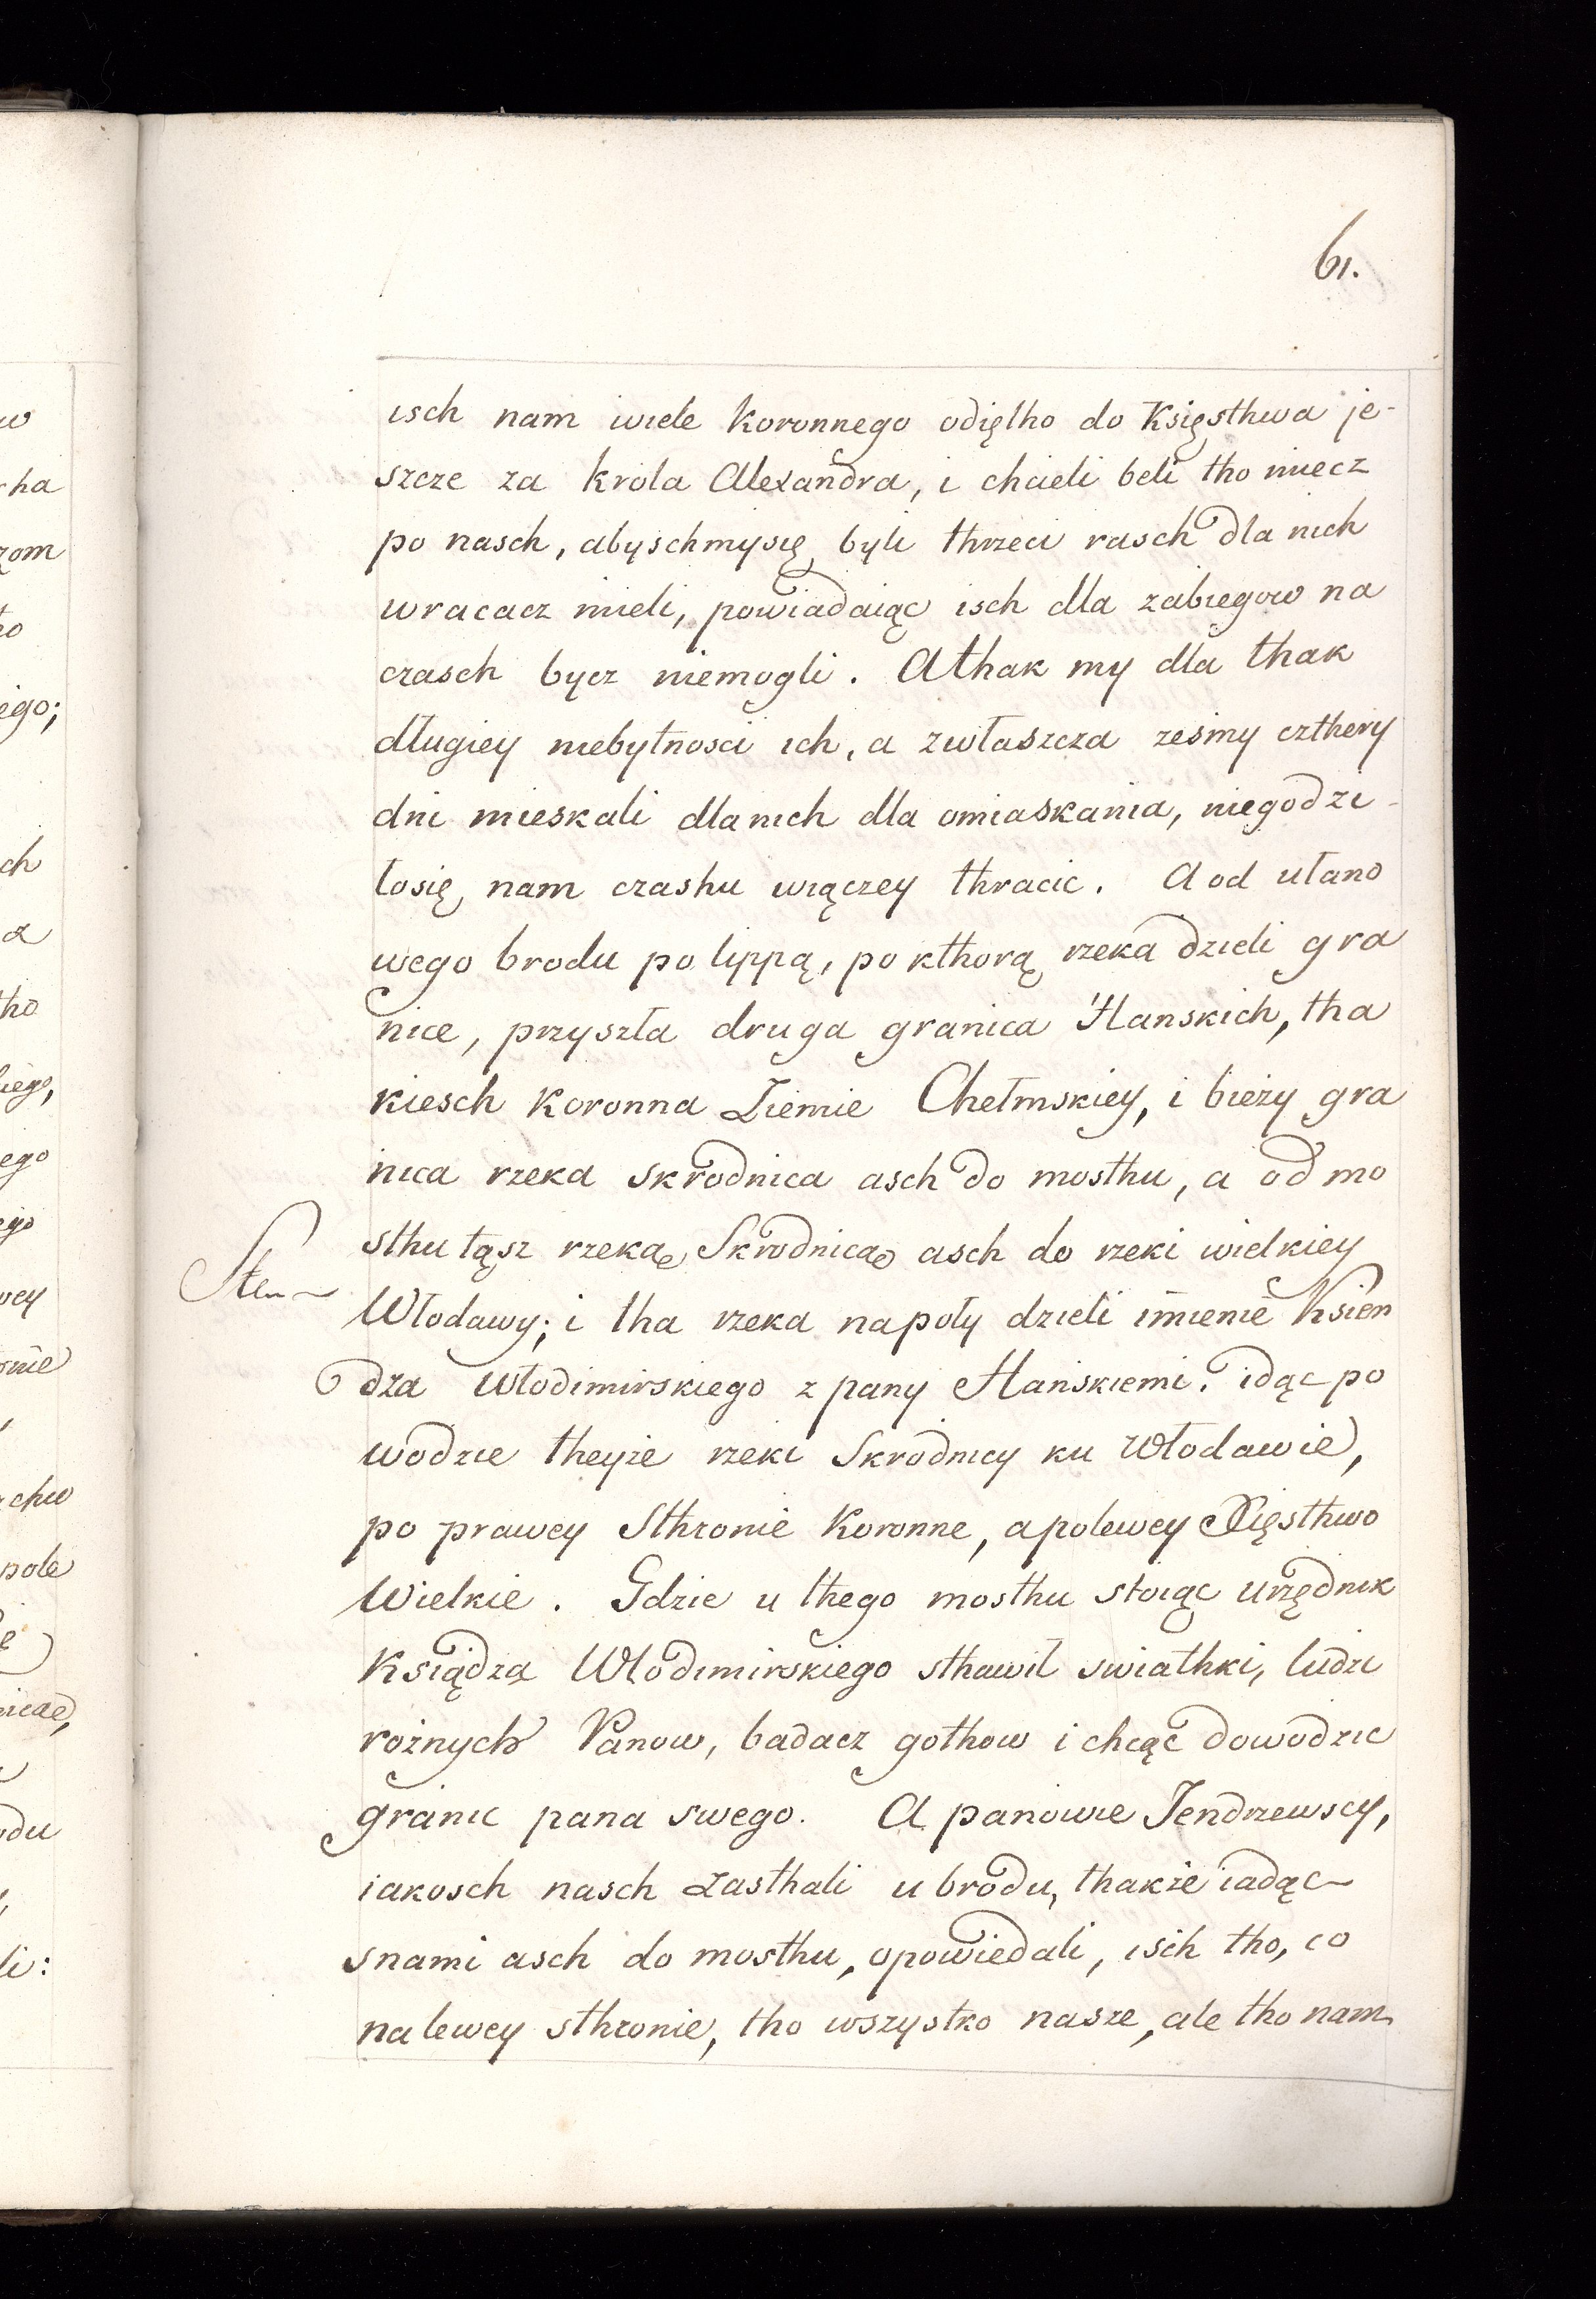 61.
isch nam wiele Koronnego odiętho do Księsthwa je-
szcze za krola Alexandra, i chcieli beli tho miecz
po nasch, abyschmysię byli thrzeci rasch dla nich
wracacz mieli, powiadaiąc isch dla zabiegow na
czasch bycz niemogli. Athak my dla thak
długiey niebytnosci ich, a zwłaszcza zesmy czthery
dni mieskali dla nich dla omiaskania, niegodzi-
łosię nam czashu wiączey thracic. A od ułano
wego brodu po lippą, po kthorą rzeka dzieli gra
nice, przyszła druga granica Hanskich, tha
kiesch Koronna Ziemie Chełmskiey, i bieży gra
nica rzeka skrodnica asch do mosthu, a od mo
sthu tąsz rzeką Skrodnicą asch do rzeki wielkiey
Włodawy; i tha rzeka napoły dzieli imienie Ksien
dza Włodimirskiego z pany Hańskiemi. idąc po
wodzie theyże rzeki Skrodnicy ku Włodawie,
po prawey Sthronie Koronne, a polewey Xięsthwo
Wielkie. Gdzie u thego mosthu stoiąc urzędnik
Ksiądza Włodimirskiego sthawił swiathki, ludzi
rożnych Panow, badacz gothow i chcąc dowodzic
granic pana swego. A panowie Jendrzewscy,
iakosch nasch Zasthali u brodu, thakże iadąc
snami asch do mosthu, opowiedali, isch tho, co
na lewey sthronie, tho wszystko nasze, ale tho nam